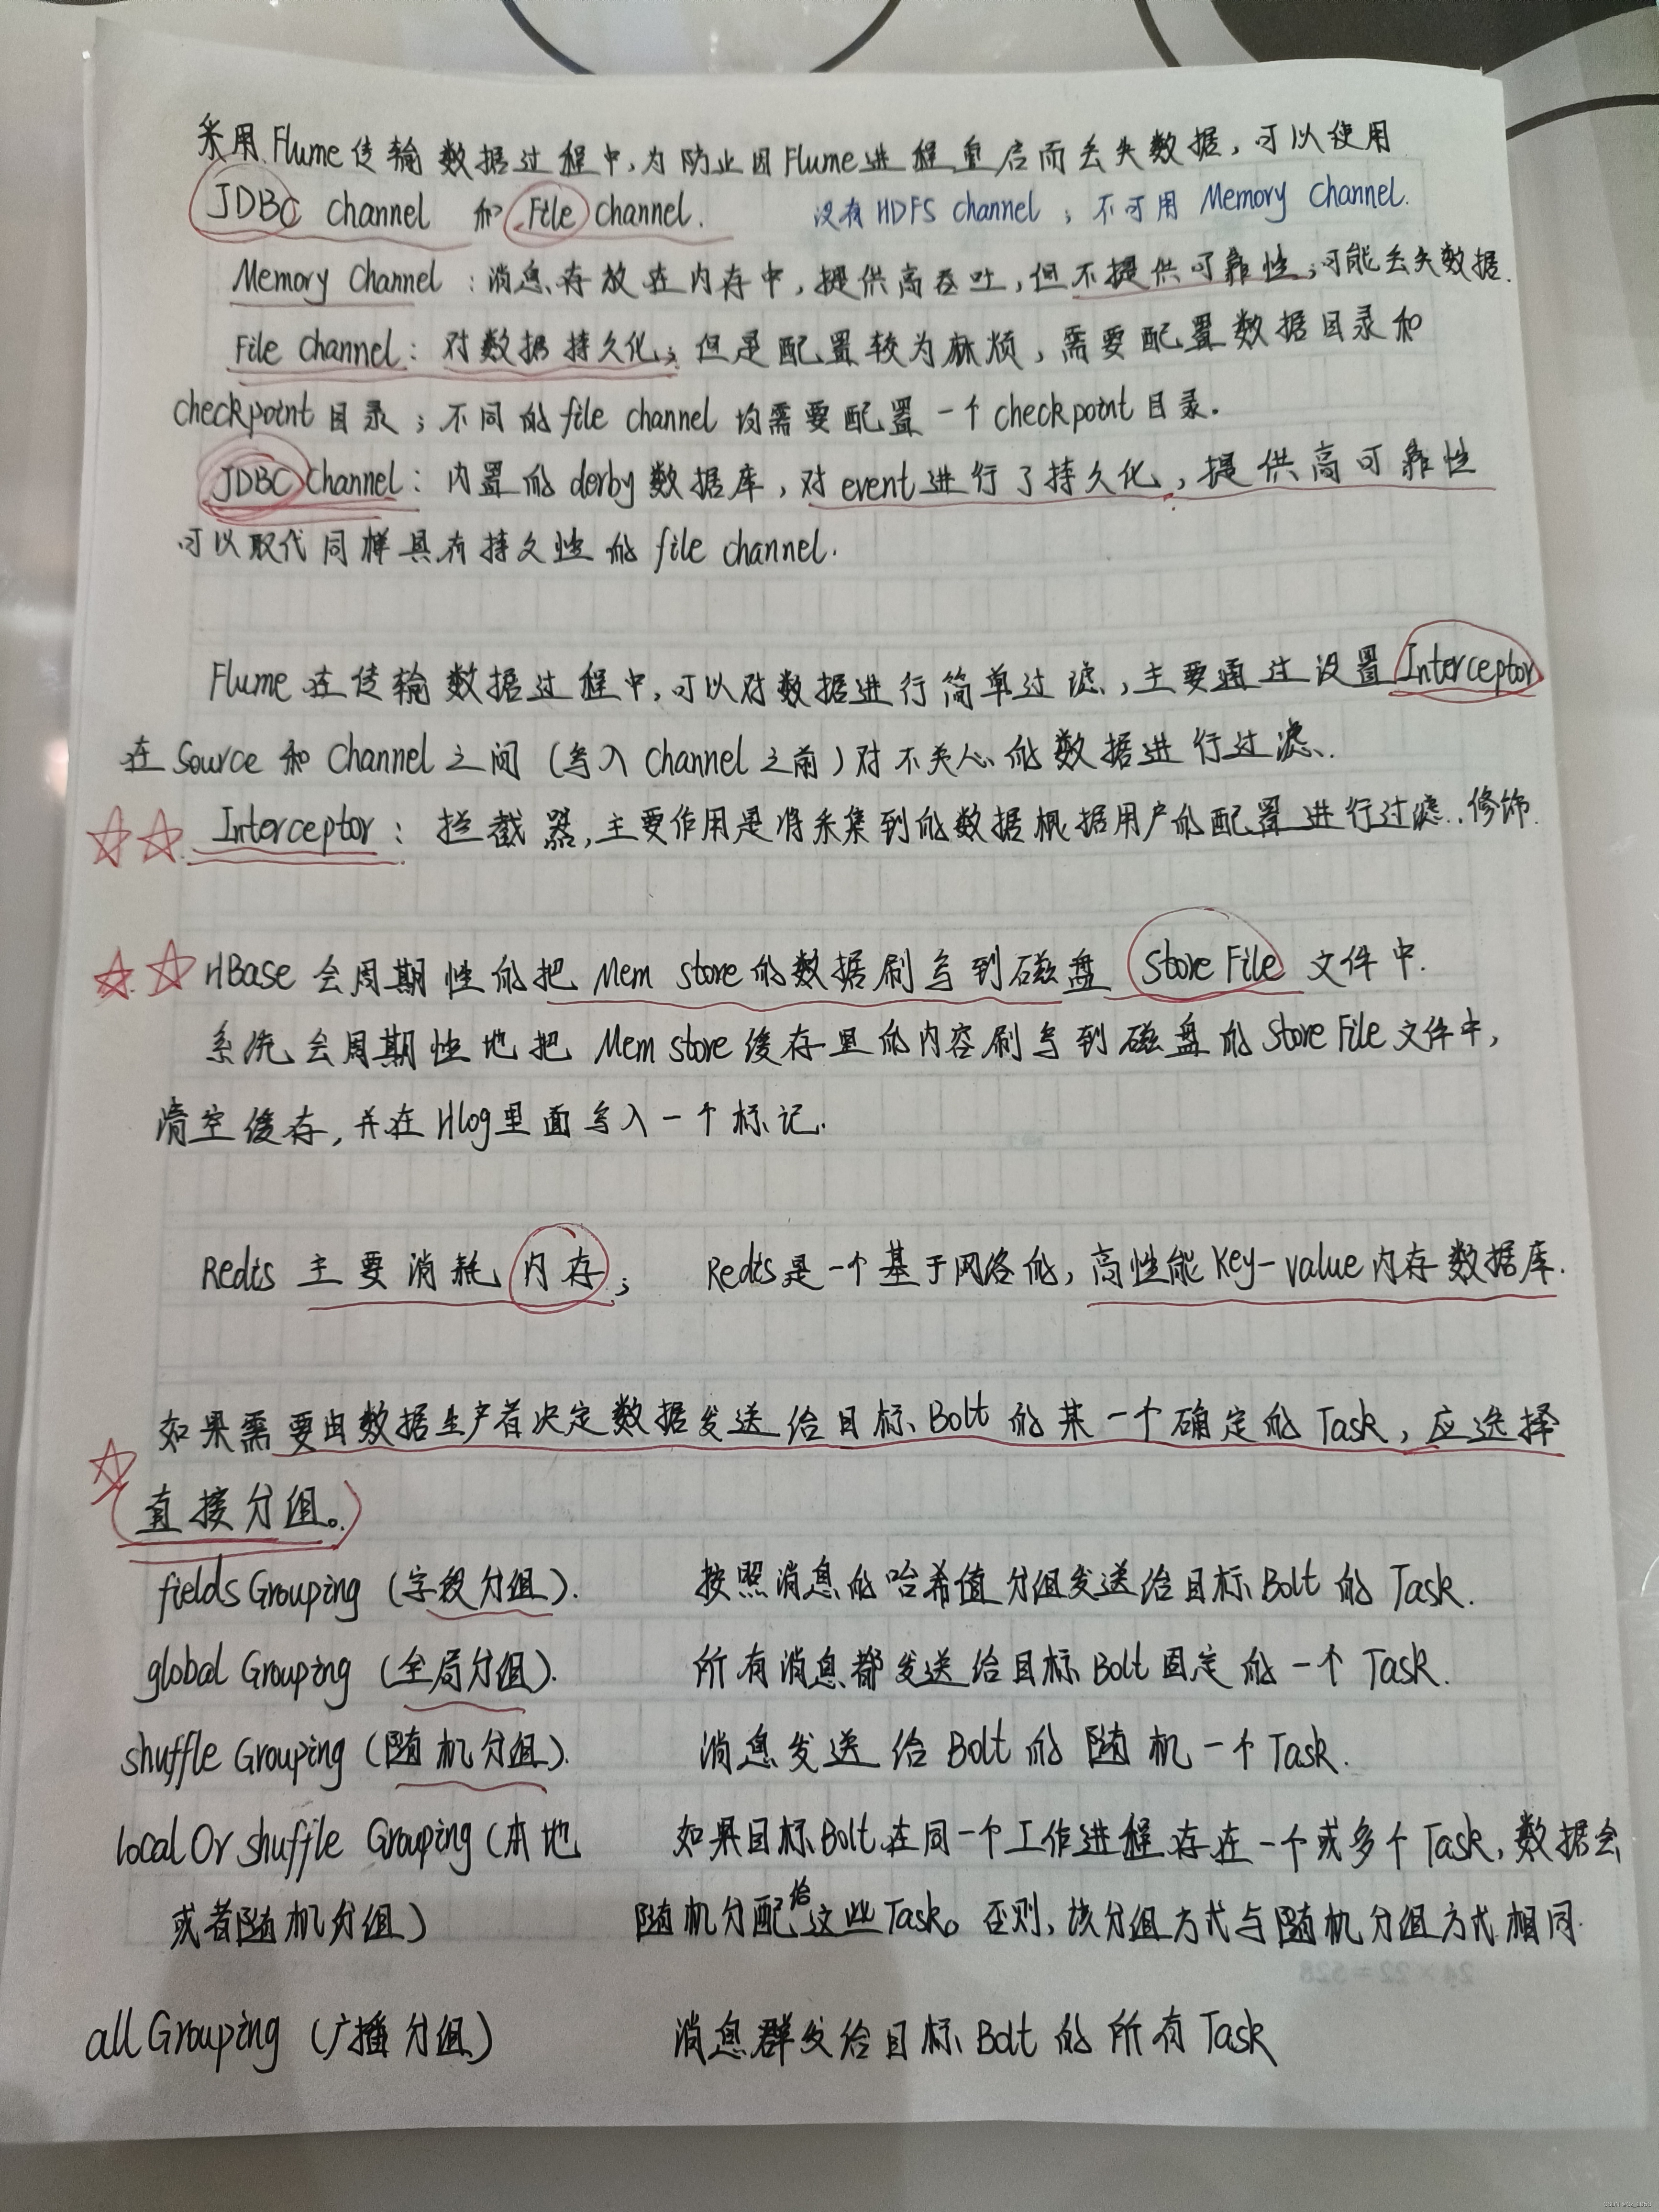 采用Flume传输数据过程中,为防止因Flume进程重启而丢失数据,可以使用
JDBC Channel 和 File Channel. 没有HDFS channel ; 不可用 Memory Channel.
Memory Channel : 消息存放在内存中,提供高吞吐,但不提供可靠性;可能丢失数据.
File Channel : 对数据持久化;但是配置较为麻烦,需要配置数据目录和
checkpoint目录;不同的file channel均需要配置一个checkpoint目录.
JDBC Channel : 内置的derby数据库,对event进行了持久化,提供高可靠性
可以取代同样具有持久性的file channel.
Flume在传输数据过程中,可以对数据进行简单过滤,主要通过设置Interceptor
在Source和Channel之间(写入Channel之前)对不关心的数据进行过滤.
Interceptor : 拦截器,主要作用是将采集到的数据根据用户的配置进行过滤.修饰.
HBase会周期性的把Mem store的数据刷写到磁盘Store File文件中.
系统会周期性地把Mem store缓存里的内容刷写到磁盘的Store File文件中,
清空缓存,并在Hlog里面写入一个标记.
Redis 主要消耗内存; Redis是一个基于网络的,高性能Key-value内存数据库.
如果需要由数据生产者决定数据发送给目标Bolt的某一个确定的Task,应选择
直接分组。
fields Grouping (字段分组). 按照消息的哈希值分组发送给目标Bolt的Task.
global Grouping (全局分组). 所有消息都发送给目标Bolt固定的一个Task.
shuffle Grouping (随机分组). 消息发送给Bolt的随机一个Task.
local Or shuffle Grouping (本地 如果目标Bolt在同一个工作进程存在一个或多个Task,数据会
或者随机分组) 随机分配给这些Task。否则,该分组方式与随机分组方式相同.
24×22=528
all Grouping (广播分组) 消息群发给目标Bolt的所有Task